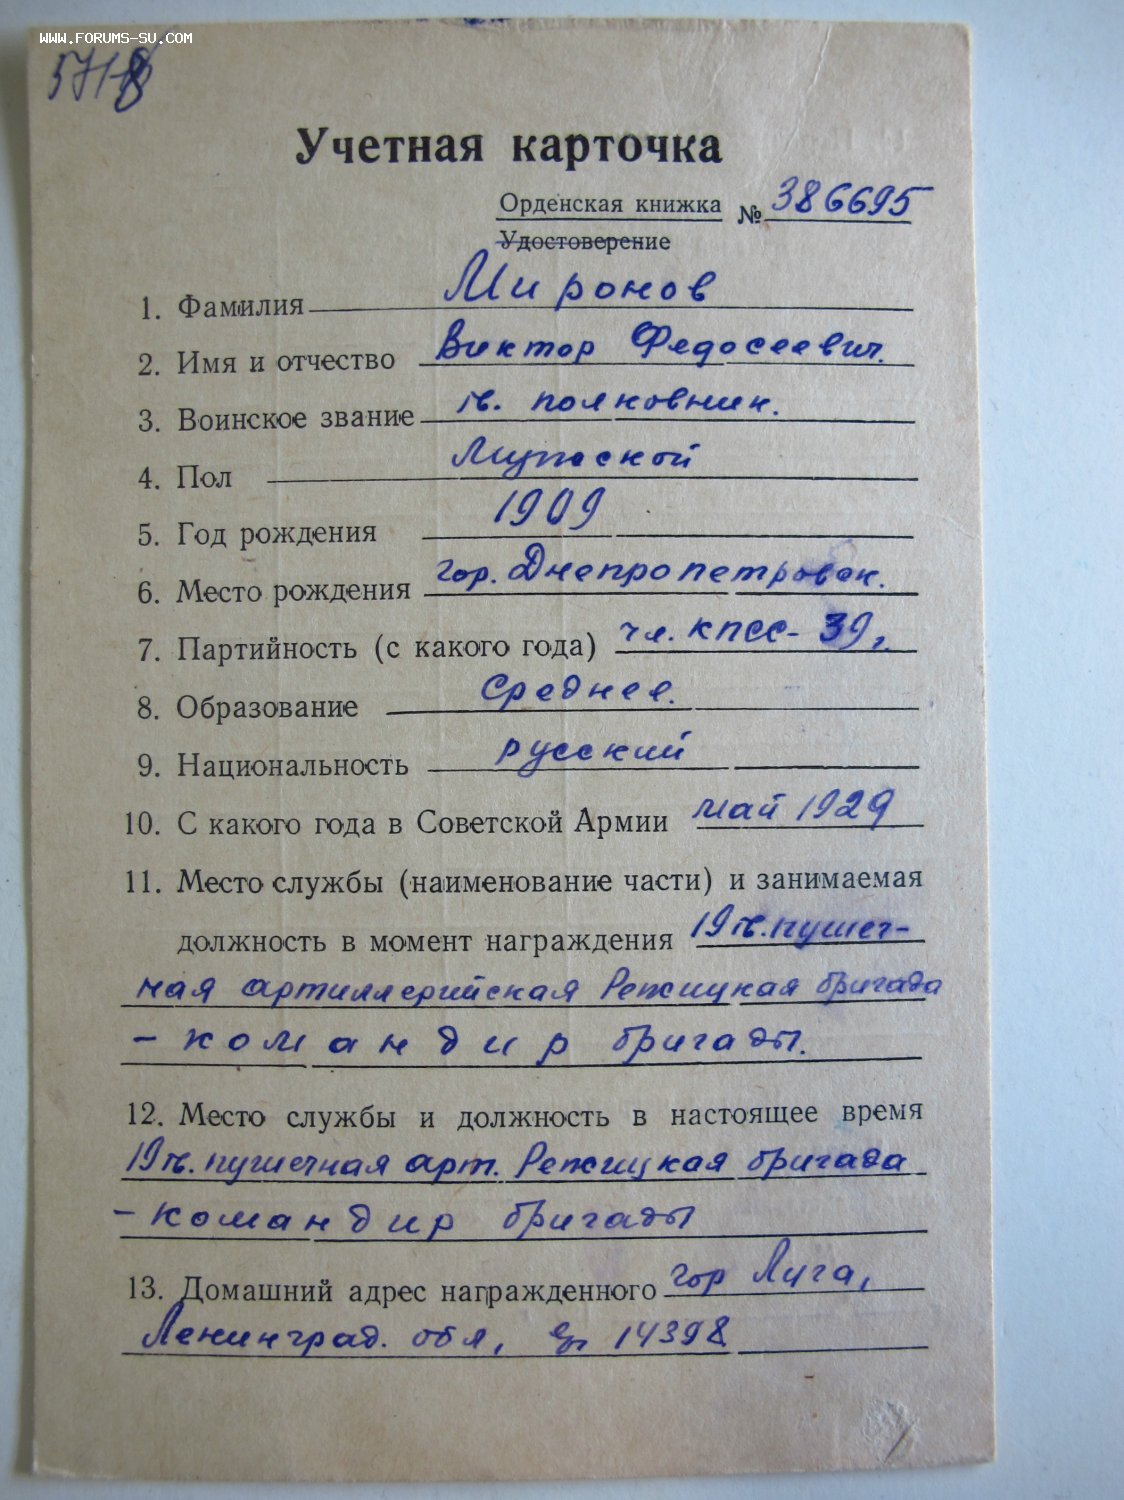 WWW.FORUMS-SU.COM
Учетная карточка
Орденская книжка № 386695
Удостоверение
1. Фамилия Миронов
2. Имя и отчество Виктор Федосеевич.
3. Воинское звание гв. полковник.
4. Пол Мужской
5. Год рождения 1909
6. Место рождения гор. Днепропетровск.
7. Партийность (с какого года) чл. КПСС - 39г.
8. Образование Среднее.
9. Национальность русский
10. С какого года в Советской Армии май 1929
11. Место службы (наименование части) и занимаемая
должность в момент награждения 19 гв. пушеч-
ная артиллерийская Режицкая бригада
- командир бригады.
12. Место службы и должность в настоящее время
19 гв. пушечная арт. Режицкая бригада
- командир бригады
13. Домашний адрес награжденного гор Луга,
Ленинград. обл, 14398